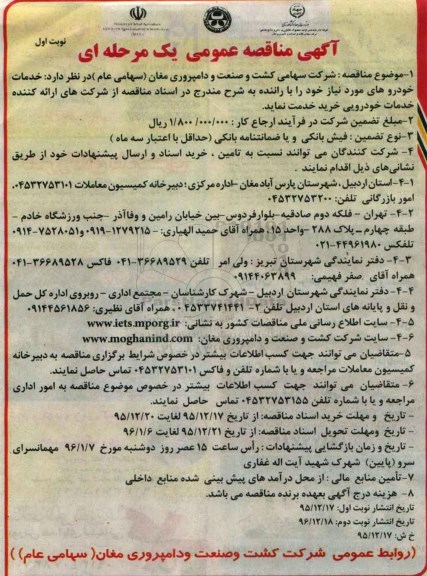 نوبت اول
آگهی مناقصه عمومی یک مرحله ای
۱-موضوع مناقصه : شرکت سهامی کشت و صنعت و دامپروری مغان (سهامی عام )در نظر دارد: خدمات
خودرو های مورد نیاز خود را با راننده به شرح مندرج در اسناد مناقصه از شرکت های ارائه کننده
خدمات خودرویی خرید خدمت نماید.
۲-مبلغ تضمین شرکت در فرآیند ارجاع کار : ۱/۸۰۰/۰۰۰/۰۰۰ ریال
۳-نوع تضمین : فیش بانکی و یا ضمانتنامه بانکی (حداقل با اعتبار سه ماه )
۴- شرکت کنندگان می توانند نسبت به تامین ، خرید اسناد و ارسال پیشنهادات خود از طریق
نشانی‌های ذیل اقدام نمایند .
۴-۱-استان اردبیل ، شهرستان پارس آباد مغان -اداره مرکزی : دبیرخانه کمیسیون معاملات ۰۴۵۳۲۷۵۳۱۰۱،
امور بازرگانی تلفن: ۰۴۵۳۲۷۵۳۲۰۰
۴-۲- تهران - فلکه دوم صادقیه -بلوارفردوس-بین خیابان رامین و وفاآذر -جنب ورزشگاه خادم -
طبقه چهارم - پلاک ۲۸۸ -واحد ۱۵، همراه آقای حمید الهیاری: ۱۲۷۹۲۱۵-۰۹۱۹و۷۵۲۸۰۵۱-۰۹۱۴
تلفکس ۴۴۹۶۱۹۸۰-۰۲۱
۴-۳- دفتر نمایندگی شهرستان تبریز : ولی امر تلفن ۳۶۶۸۹۵۲۹-۰۴۱ فاکس ۳۶۶۸۹۵۲۸-۰۴۱
همراه آقای صفر فهیمی: ۰۹۱۴۴۰۶۳۸۹۹
۴-۴- دفتر نمایندگی شهرستان اردبیل - شهرک کارشناسان - مجتمع اداری - روبروی اداره کل حمل
و نقل و پایانه های استان اردبیل تلفن ۲-۰۴۵۳۳۷۴۱۴۴۱ . همراه آقای نظیری: ۰۹۱۴۴۵۶۱۸۵۶
۴-۵- سایت اطلاع رسانی ملی مناقصات کشور به نشانی: www.iets.mporg.ir
۴-۶- سایت شرکت کشت و صنعت و دامپروری مغان: www.moghanind.com
۵-متقاضیان می توانند جهت کسب اطلاعات بیشتر در خصوص شرایط برگزاری مناقصه به دبیرخانه
کمیسیون معاملات مراجعه و یا با شماره تلفن و فاکس ۰۴۵۳۲۷۵۳۱۰۱ تماس حاصل نمایند.
۶- متقاضیان می توانند جهت کسب اطلاعات بیشتر در خصوص موضوع مناقصه به امور اداری
مراجعه و یا با شماره تلفن ۰۴۵۳۲۷۵۳۱۵۵ تماس حاصل نمایند.
- تاریخ و مهلت خرید اسناد مناقصه: از تاریخ ۹۵/۱۲/۱۷ لغایت ۹۵/۱۲/۲۰
- تاریخ ومهلت تحویل اسناد مناقصه: از تاریخ ۹۵/۱۲/۲۱ لغایت ۹۶/۱/۶
- تاریخ و زمان بازگشایی پیشنهادات : رأس ساعت ۱۵ عصر روز دوشنبه مورخ ۹۶/۱/۷ مهمانسرای
سرو (پایین) شهرک شهید آیت اله غفاری
۷-تأمین منابع مالی : از محل درآمد های پیش بینی شده منابع داخلی
۸- هزینه درج آگهی بعهده برنده مناقصه می باشد.
تاریخ انتشار نوبت اول: ۹۵/۱۲/۱۷
تاریخ انتشار نوبت دوم: ۹۶/۱۲/۱۸
خ ش: ۹۵/۱۲/۱۷
((روابط عمومی شرکت کشت وصنعت ودامپروری مغان( سهامی عام))